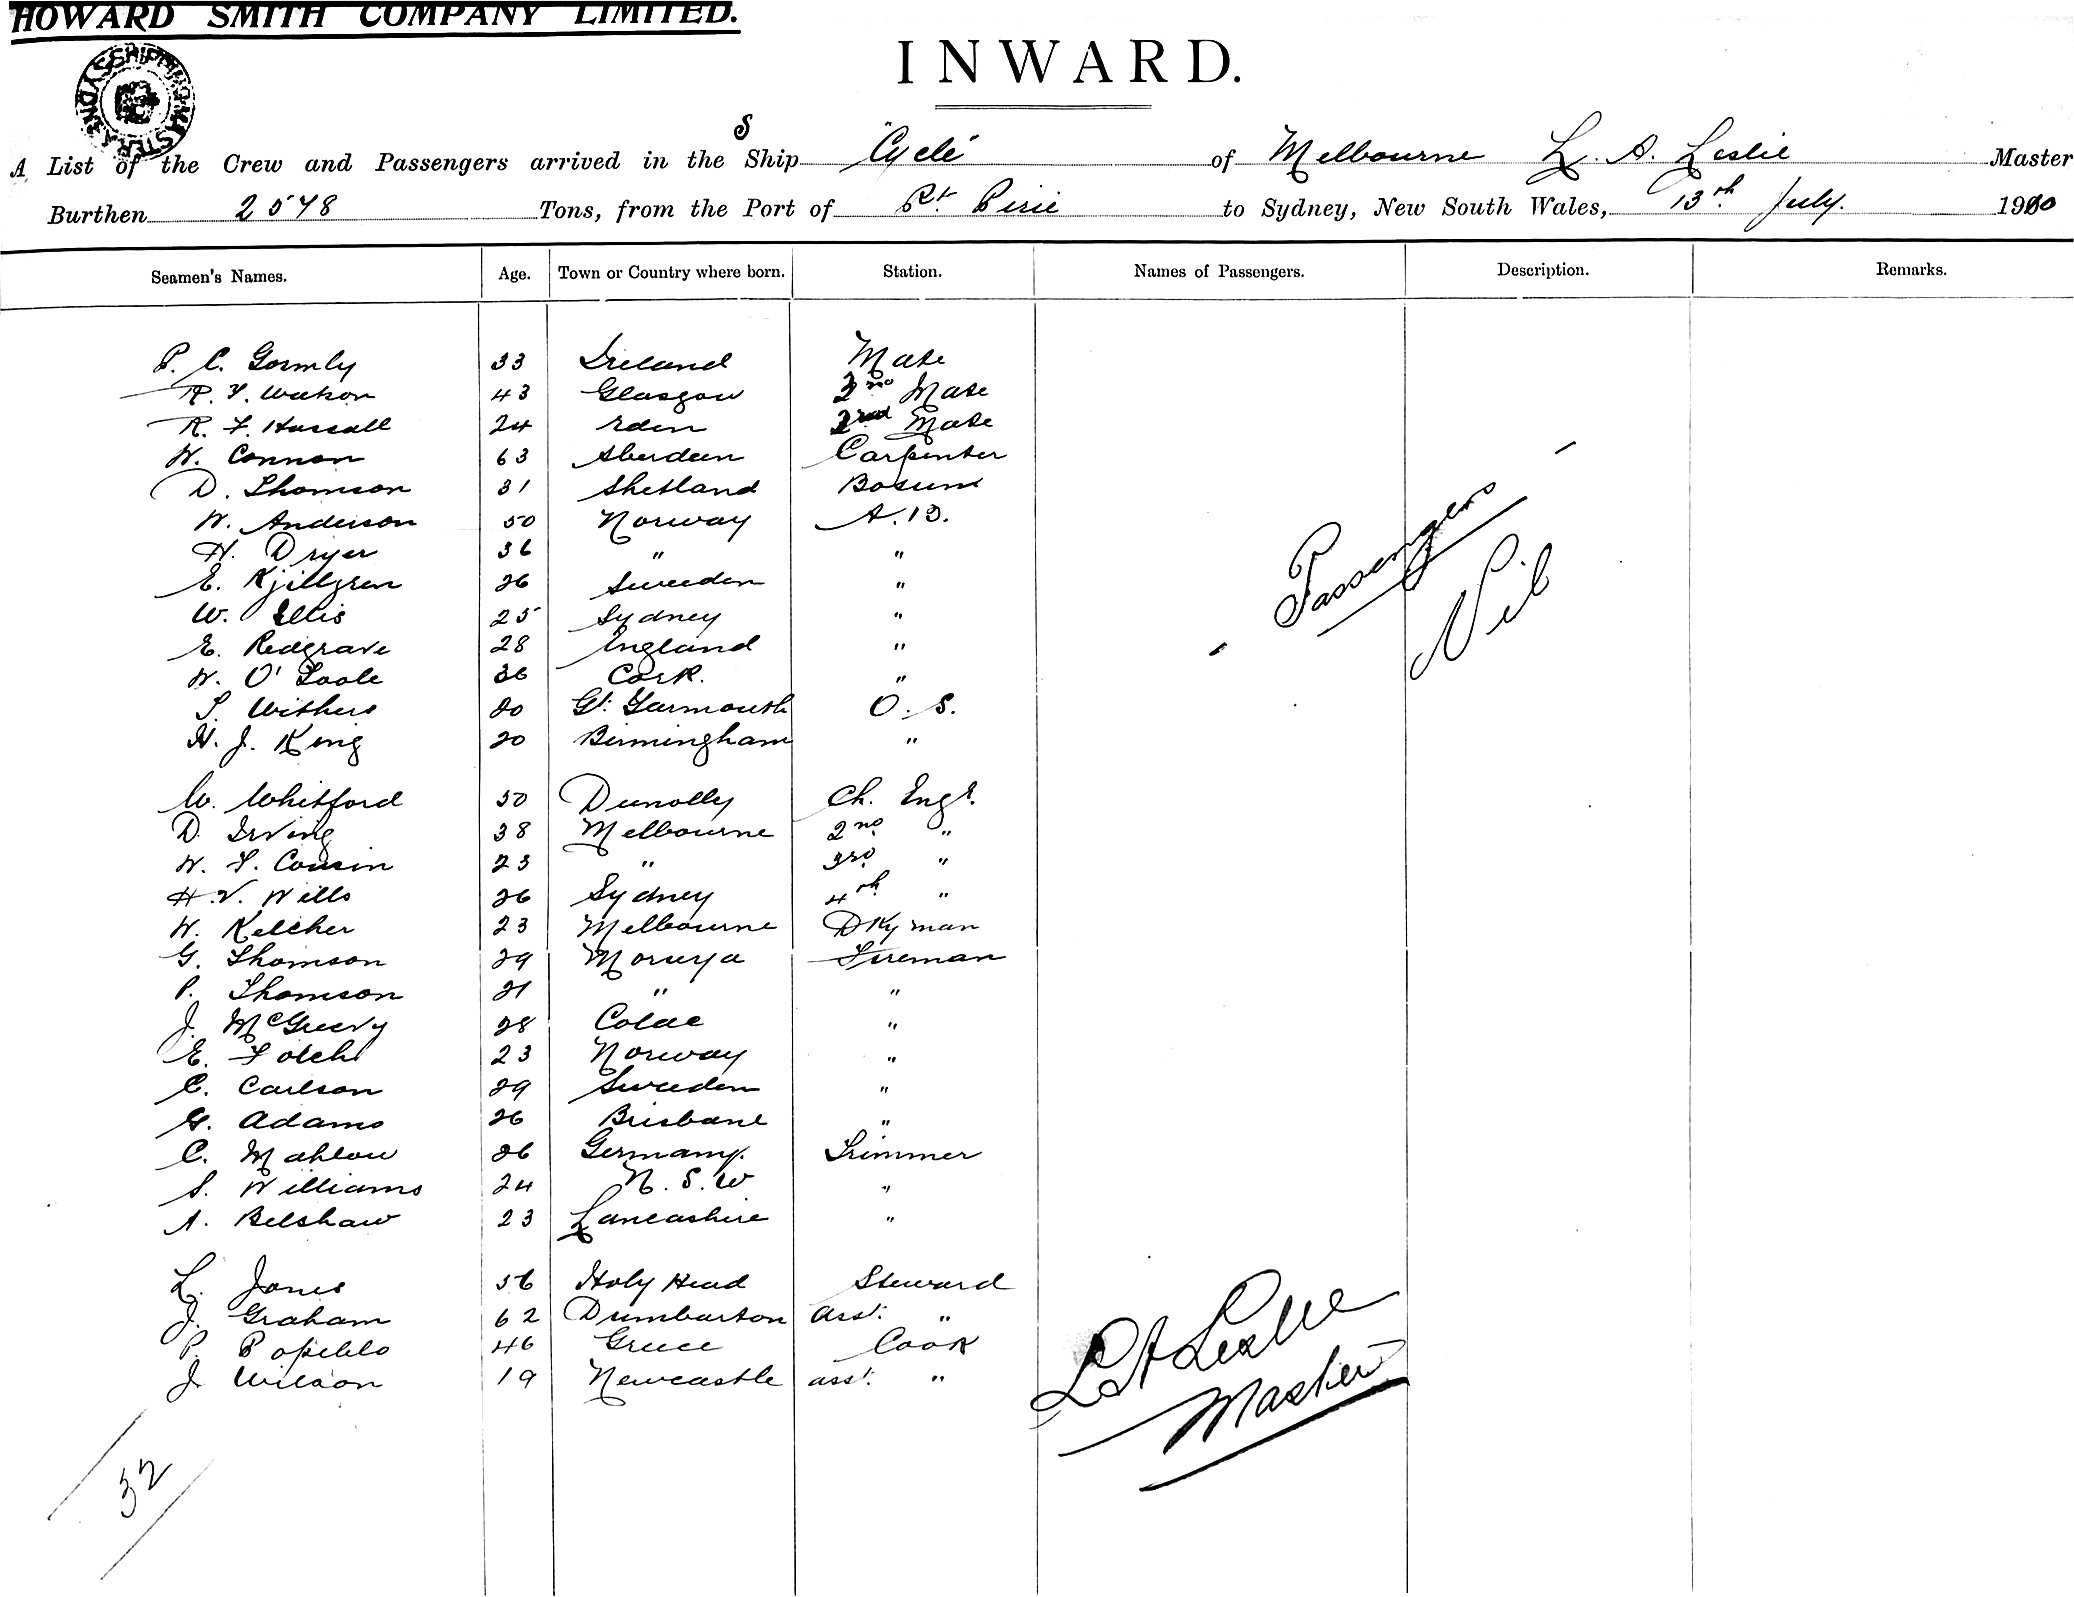 HOWARD SMITH COMPANY LIMITED.
INWARD.
SYDNEY SHIPPING MASTER
A List of the Crew and Passengers arrived in the S Ship "Cycle" of Melbourne L. A. Leslie Master
Burthen 2578 Tons, from the Port of Pt. Pirie to Sydney, New South Wales, 13th July. 1910
Seamen's Names. Age. Town or Country where born. Station. Names of Passengers. Description. Remarks.
P. C. Gormly 33 Ireland Mate
R. F. Watson 43 Glasgow 2nd Mate
R. F. Hassall 24 Eden 3rd Mate
W. Connon 63 Aberdeen Carpenter
D. Thomson 31 Shetland Bosun
W. Anderson 50 Norway A.B.
H. Dryer 36 " "
E. Kjillgren 26 Sweeden "
W. Ellis 25 Sydney "
E. Redgrave 28 England "
W. O'Toole 36 Cork. "
S. Withers 20 Gt. Yarmouth O. S.
H. J. King 20 Birmingham "
Passengers
Nil
W. Whitford 50 Dunolly Ch. Engr.
D. Irving 38 Melbourne 2nd "
W. F. Cousin 23 " 3rd "
H. V. Wills 26 Sydney 4th "
W. Kelcher 23 Melbourne Dkyman
G. Thomson 29 Moruya Fireman
P. Thomson 21 " "
J. McGreevy 28 Colac "
E. 23 Norway "
C. Carlson 29 Sweeden "
G. Adams 26 Brisbane "
C. Mahlow 26 Germany. Trimmer
S. Williams 24 N. S. W "
A. Belshaw 23 Lancashire "
L. Jones 56 Holy Head Steward
J. Graham 62 Dumbarton Asst. "
P. 46 Greece Cook
J. Wilson 19 Newcastle asst. "
L A Leslie
Master
32